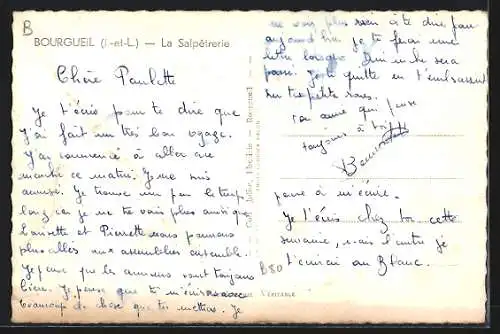 B
BOURGUEIL (I.-et-L.) — La Salpêtrerie
Chère Paulette
Je t'écris pour te dire que
j'ai fait un très bon voyage.
J'ai commencé à aller au
marché ce matin. Je me suis
amusé. Je trouve un peu le temps
long car je ne te vois plus ainsi que
Pierrette nous pourrons
plus aller aux assemblées ensemble.
Je pense que les amours vont toujours
bien. Je pense que tu m'écriras
beaucoup de chose que tu mettras. Je
ne vois plus rien à te dire pour
aujourd'hui je te ferai une
lettre longue Dimanche sera
passé. Je te quitte en t'embrassant
sur tes petites joues.
Ton amie qui pense
toujours à toi
pour m'écrire.
Je t'écris chez toi cette
semaine, mais l'autre je
t'écrirai au Blanc.
B80